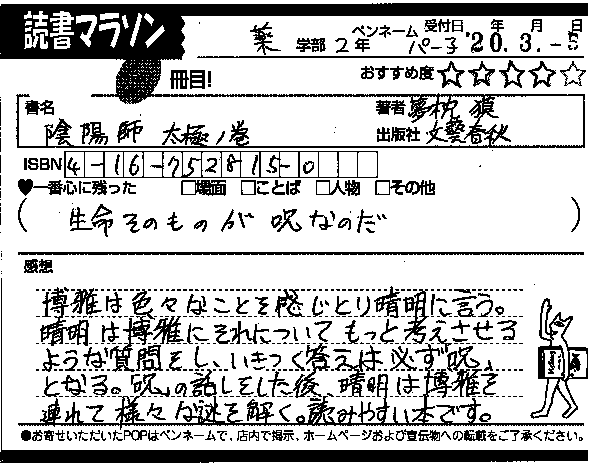 読書マラソン
薬 学部 2年 ペンネーム パー子 受付日 '20.3.-5 年 月 日
冊目!
おすすめ度 ☆☆☆☆☆
書名 陰陽師 太極ノ巻
著者 夢枕 獏
出版社 文藝春秋
ISBN 4-16-752815-0
♥一番心に残った □場面 □ことば □人物 □その他
( 生命そのものが 呪なのだ )
感想
博雅は色々なことを感じとり晴明に言う。
晴明は博雅にそれについてもっと考えさせる
ような質問をし、いきつく答えは必ず「呪」
となる。「呪」の話しをした後、晴明は博雅を
連れて様々な謎を解く。読みやすい本です。
●お寄せいただいたPOPはペンネームで、店内で掲示、ホームページおよび宣伝物への転載をご了承ください。